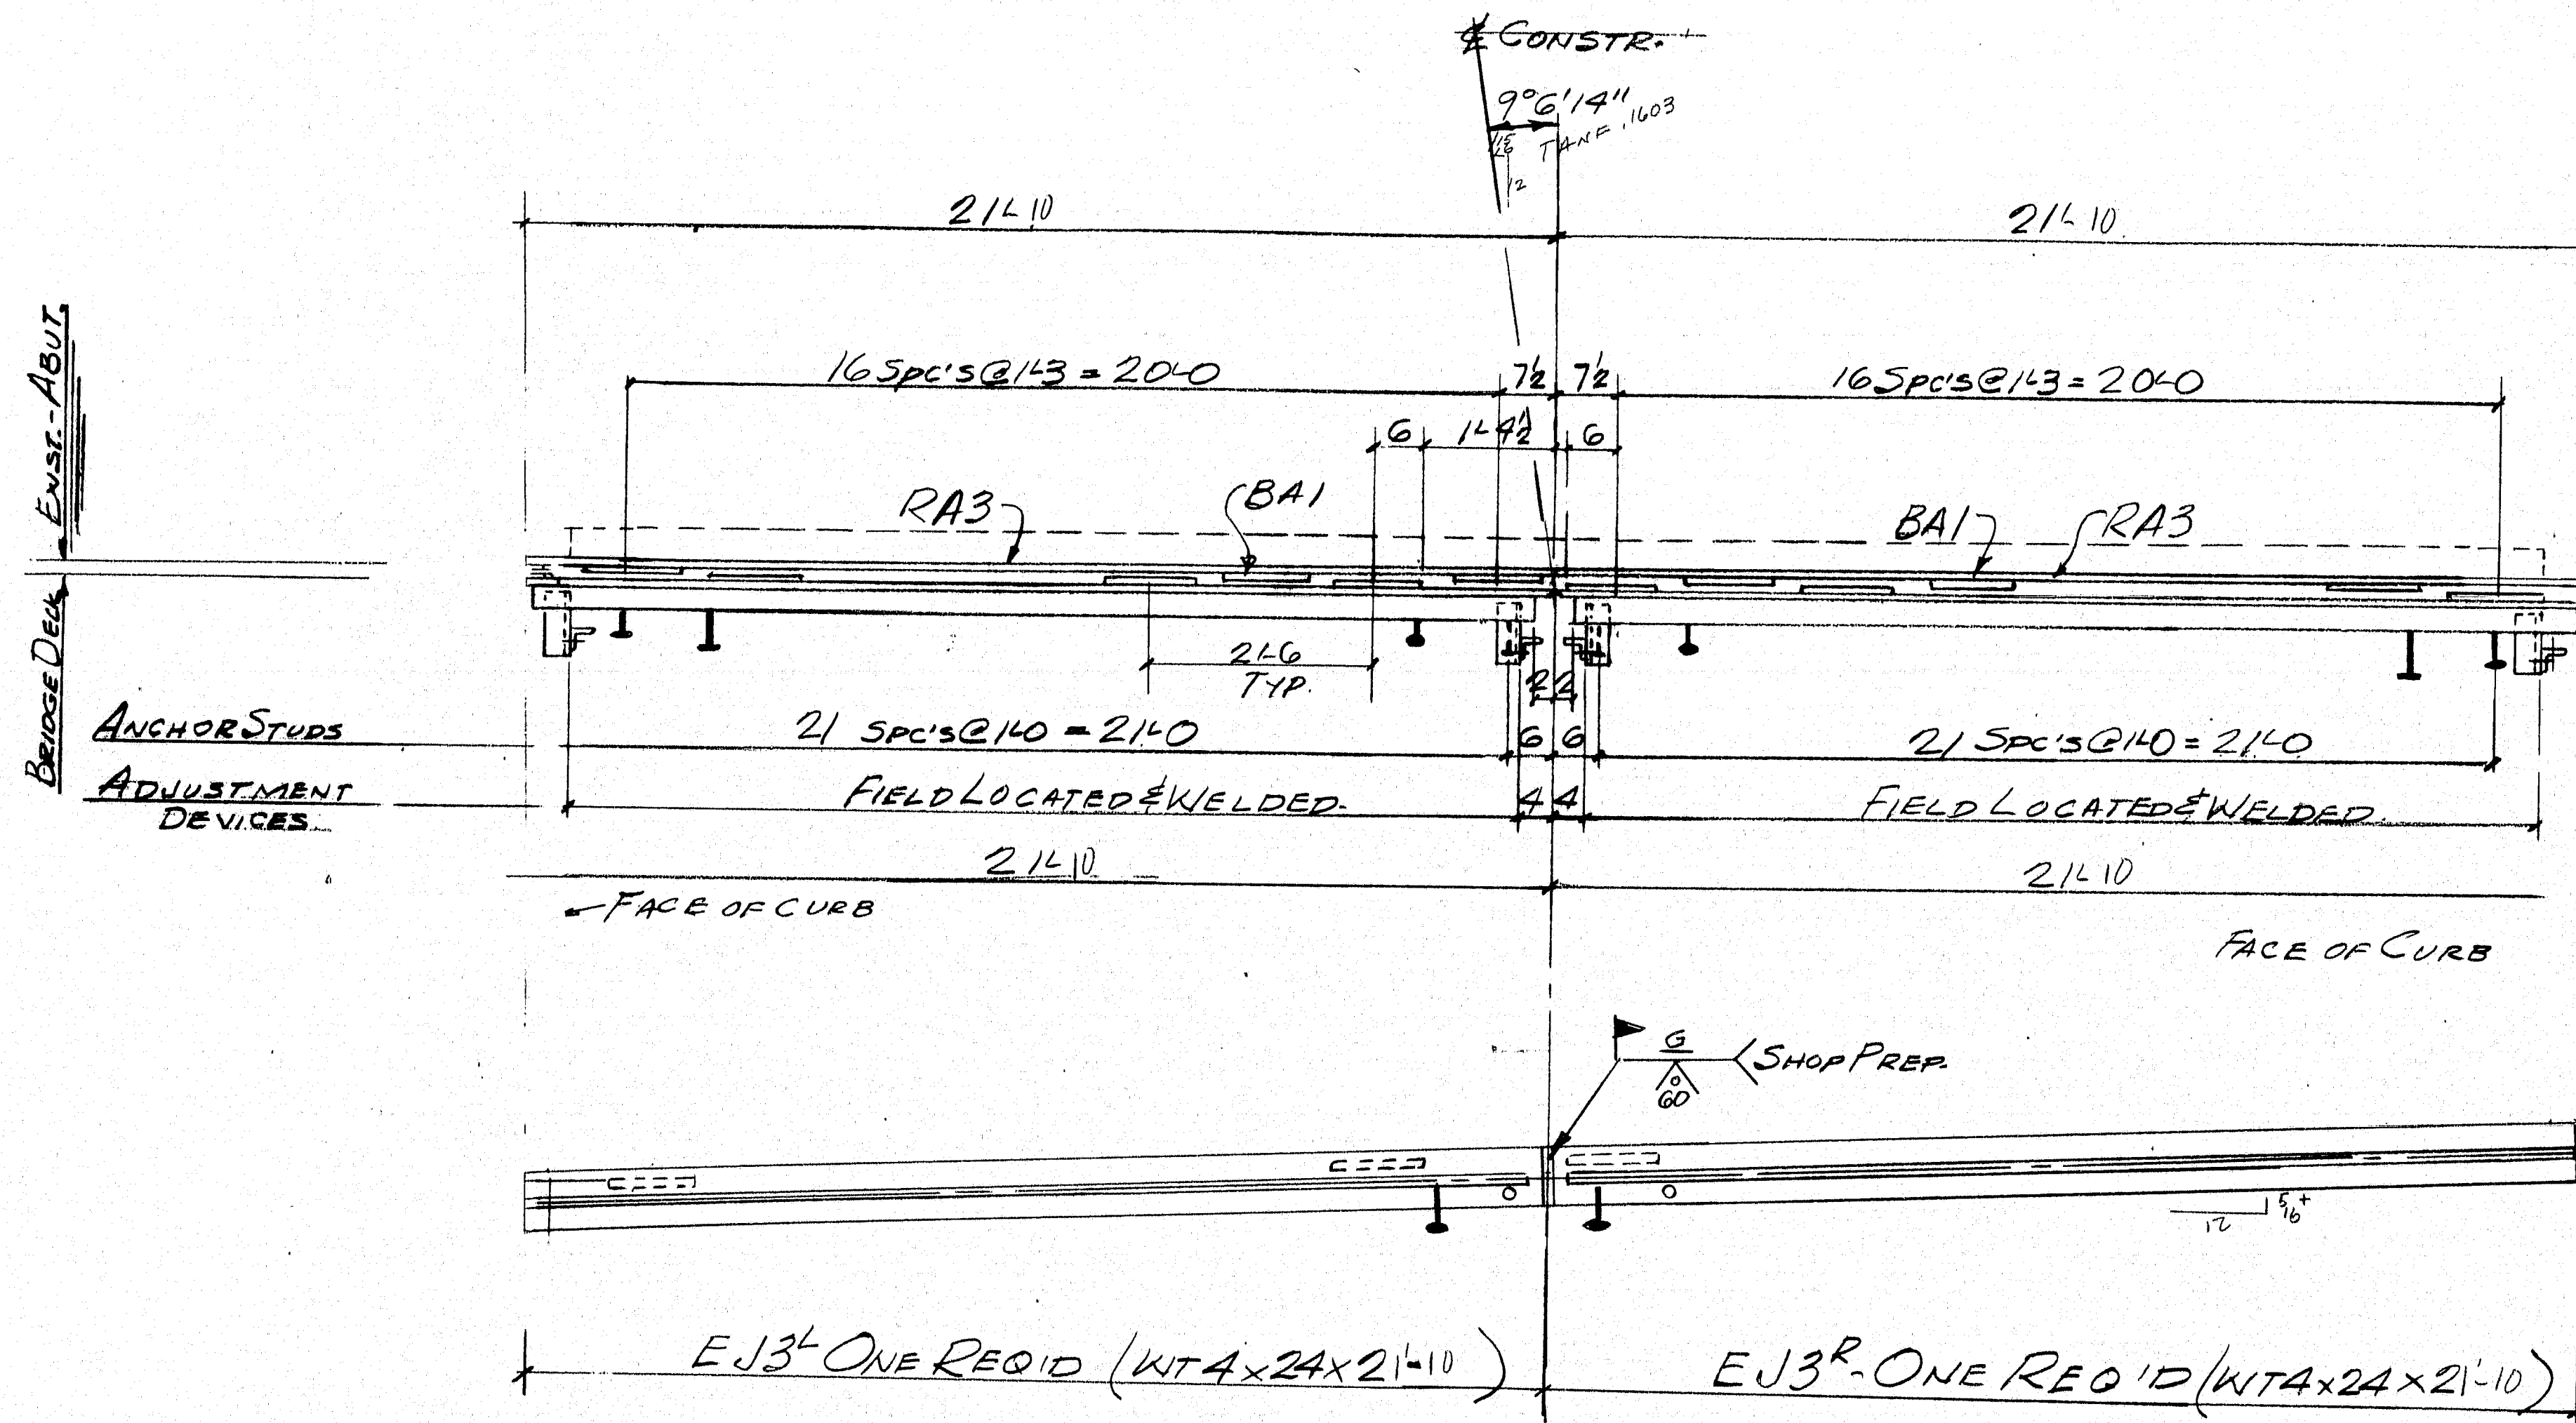 ℄ CONSTR.
9°6'14"
TANF .1603
1 15/16
12
21'-10
21'-10
16 Spc's @ 1'-3 = 20'-0
7½
7½
16 Spc's @ 1'-3 = 20'-0
6
1'-4½
6
RA3
BA1
BA1
RA3
EXIST.-ABUT.
BRIDGE DECK
2'-6
TYP.
2
2
ANCHOR STUDS
21 Spc's @ 1'-0 = 21'-0
6
6
21 Spc's @ 1'-0 = 21'-0
ADJUSTMENT
DEVICES
FIELD LOCATED & WELDED.
4
4
FIELD LOCATED & WELDED.
21'-10
21'-10
FACE OF CURB
FACE OF CURB
G
0
60
SHOP PREP.
12
5/16+
EJ3L ONE REQ'D (WT4x24x21'-10)
EJ3R-ONE REQ'D (WT4x24x21'-10)